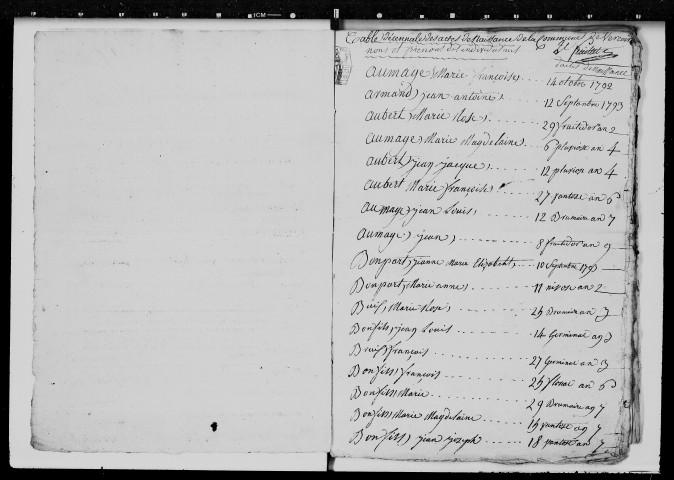 1CM
Table Décennale des actes de Naissance de la Commune de
noms et prenoms des individus
dattes de Naissance
aumage, Marie françoise, 14 octobre 1792
armand, jean antoine, 12 Septembre 1793
aubert, Marie Rose, 29 fruitidor an 2
aumage, Marie Magdelaine, 6 pluviose an 4
aubert, jean jacque, 12 pluviose an 4
aubert Marie françoise, 27 vantose an 6
aumage, jean Louis, 12 Brumaire an 7
aumage, jean, 8 fruitidor an 9
Bonpart, jeanne Marie Elizabeht, 10 Septembre 1793
Bonpart, Marie anne, 11 nivose an 2
Marie Rose, 25 Brumaire an 3
Bonfils, jean Louis 14 Germinal an 3
françois 27 Germinal an 3
Bonfils, françois 25 floreal an 6
Bonfils Marie 29 Brumaire an 7
Bonfils Marie Magdelaine 15 vantose an 7
Bonfils, jean joseph 18 vantose an 7